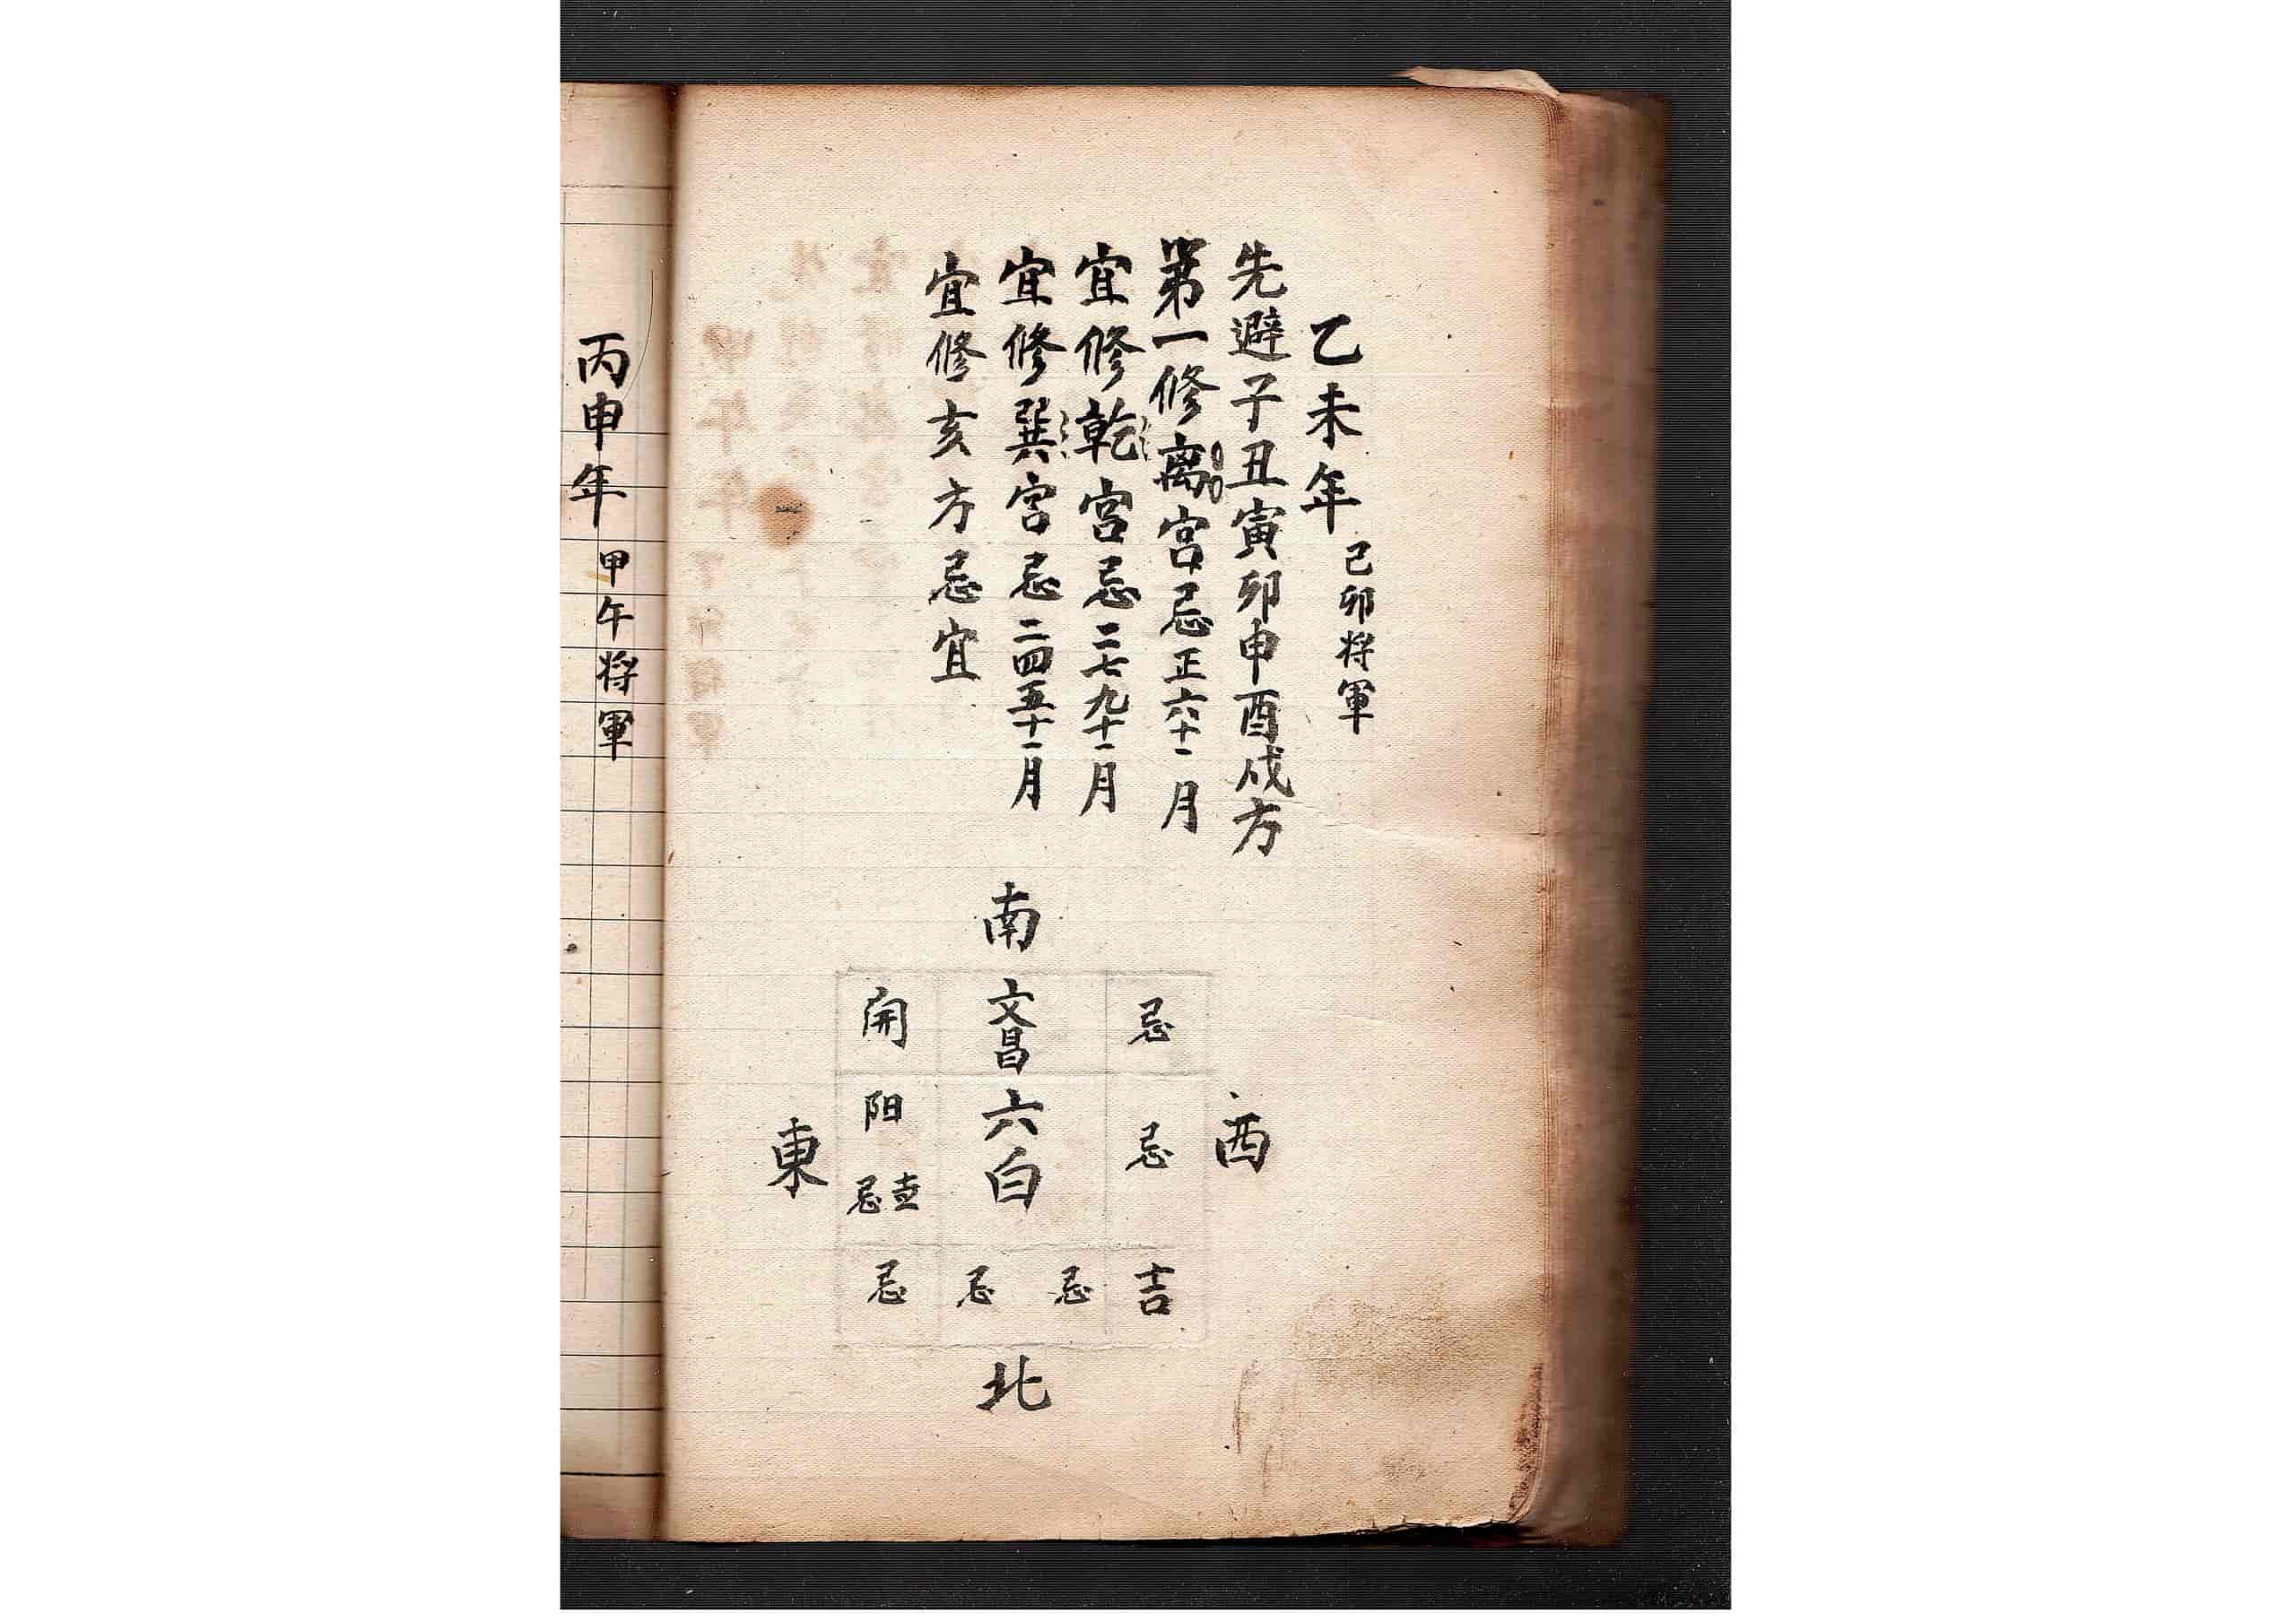 乙未年 己卯将軍
先避子丑寅卯申酉戌方
第一修离宮忌正六十一月
宜修乾宮忌二七九十一月
宜修巽宮忌二四五十一月
宜修亥方忌宜
南
開 文昌 忌
阳 六白 忌
東
西
忌
忌 忌 忌 吉
北
丙申年 甲午将軍